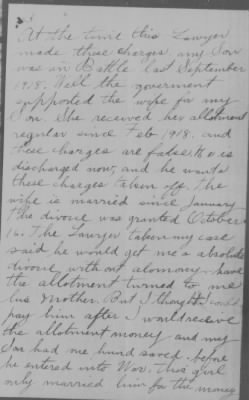 At the time this Lawyer
made these charges, my Son
was in Battle last September
1918. Well the goverment
supported the wife for my
Son. She received her allotment
regular since Feb 1918. and
these charges are false. He is
discharged now, and he wants
these charges taken off. The
wife is married since January
the divorce was granted October
16. The Lawyer taken my case
said he would get me a absolute
divorce with out alomony. have
the allotment turned to me
his Mother. But I thought I could
pay him after I would receive
the allotment money. and my
Son had one hund saved before
he entered into War. this girl
only married him for the money